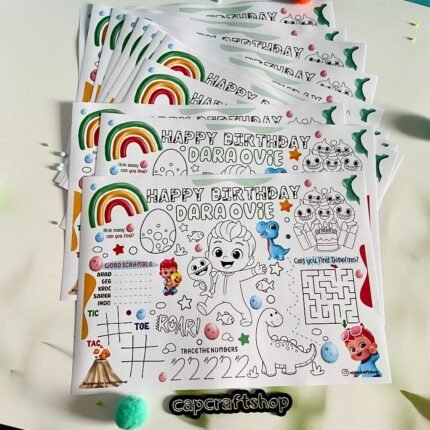 HAPPY BIRTHDAY
DARA OVIE
HAPPY BIRTHDAY
DARA OVIE
How many
can you find?
WORD SCRAMBLE
ARAD
GEG
KROC
SARKH
INDO
Can you find Babefinn?
TIC
TOE
TAC
ROAR!
TRACE THE NUMBERS
22222
capcraftshop